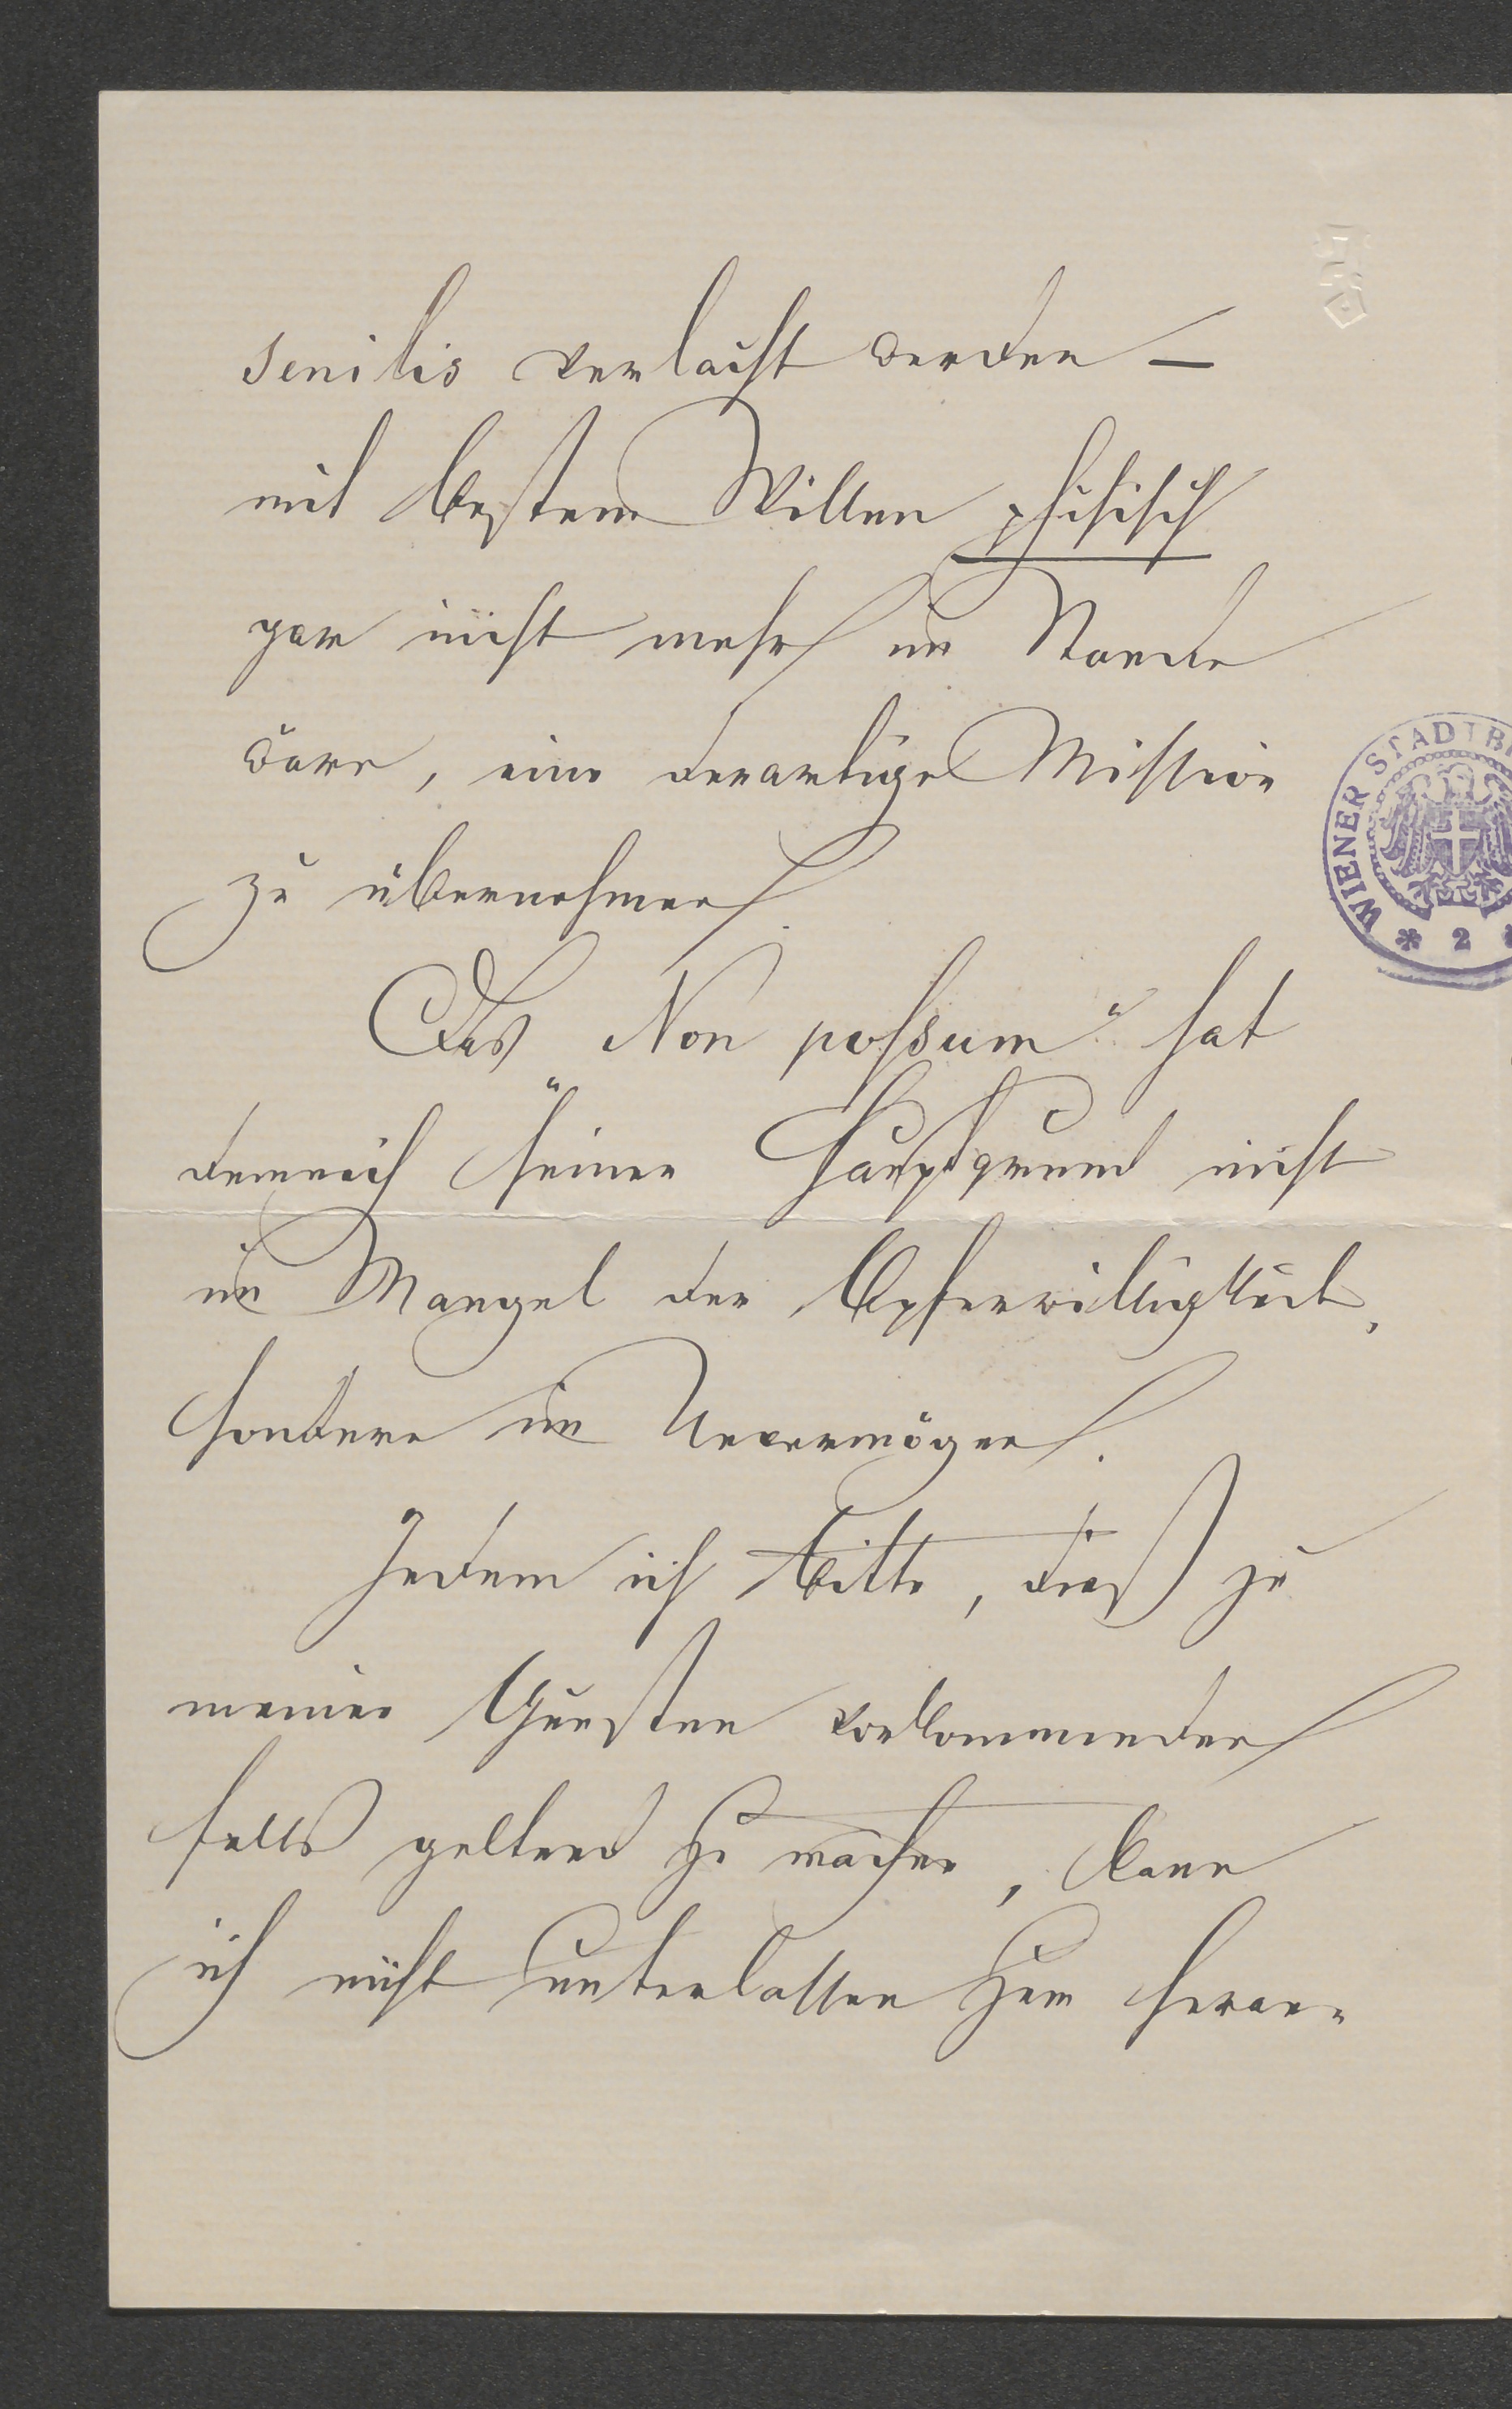 senilis verlacht werden —
mit bestem Willen phisisch
gar nicht mehr im Stande
wäre, eine derartige Mission
zu übernehmen.
Das „Non possum“ hat
demnach seinen Hauptgrund nicht
im Mangel der Opferwilligkeit,
sondern im Unvermögen.
Indem ich bitte, dieß zu
meinen Gunsten vorkommenden
falls geltend zu machen, kann
ich nicht unterlassen zum heran-
WIENER STADTBI
* 2 *